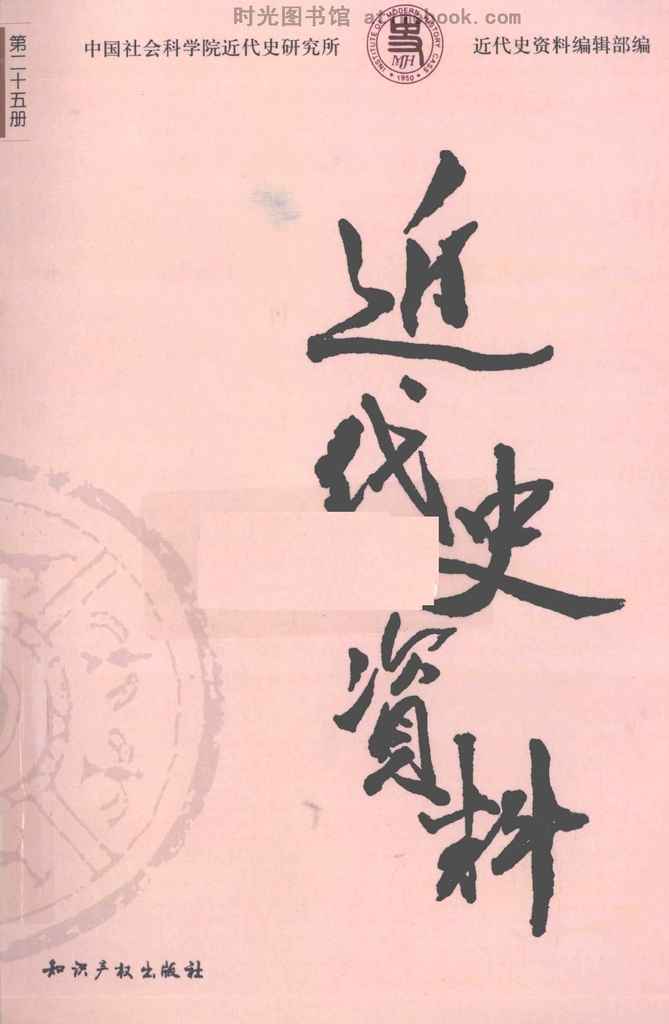 时光图书馆 artmbook.com
中国社会科学院近代史研究所
INSTITUTE OF MODERN HISTORY CASS
MH
1950
近代史资料编辑部编
第二十五册
近代史資料
知识产权出版社